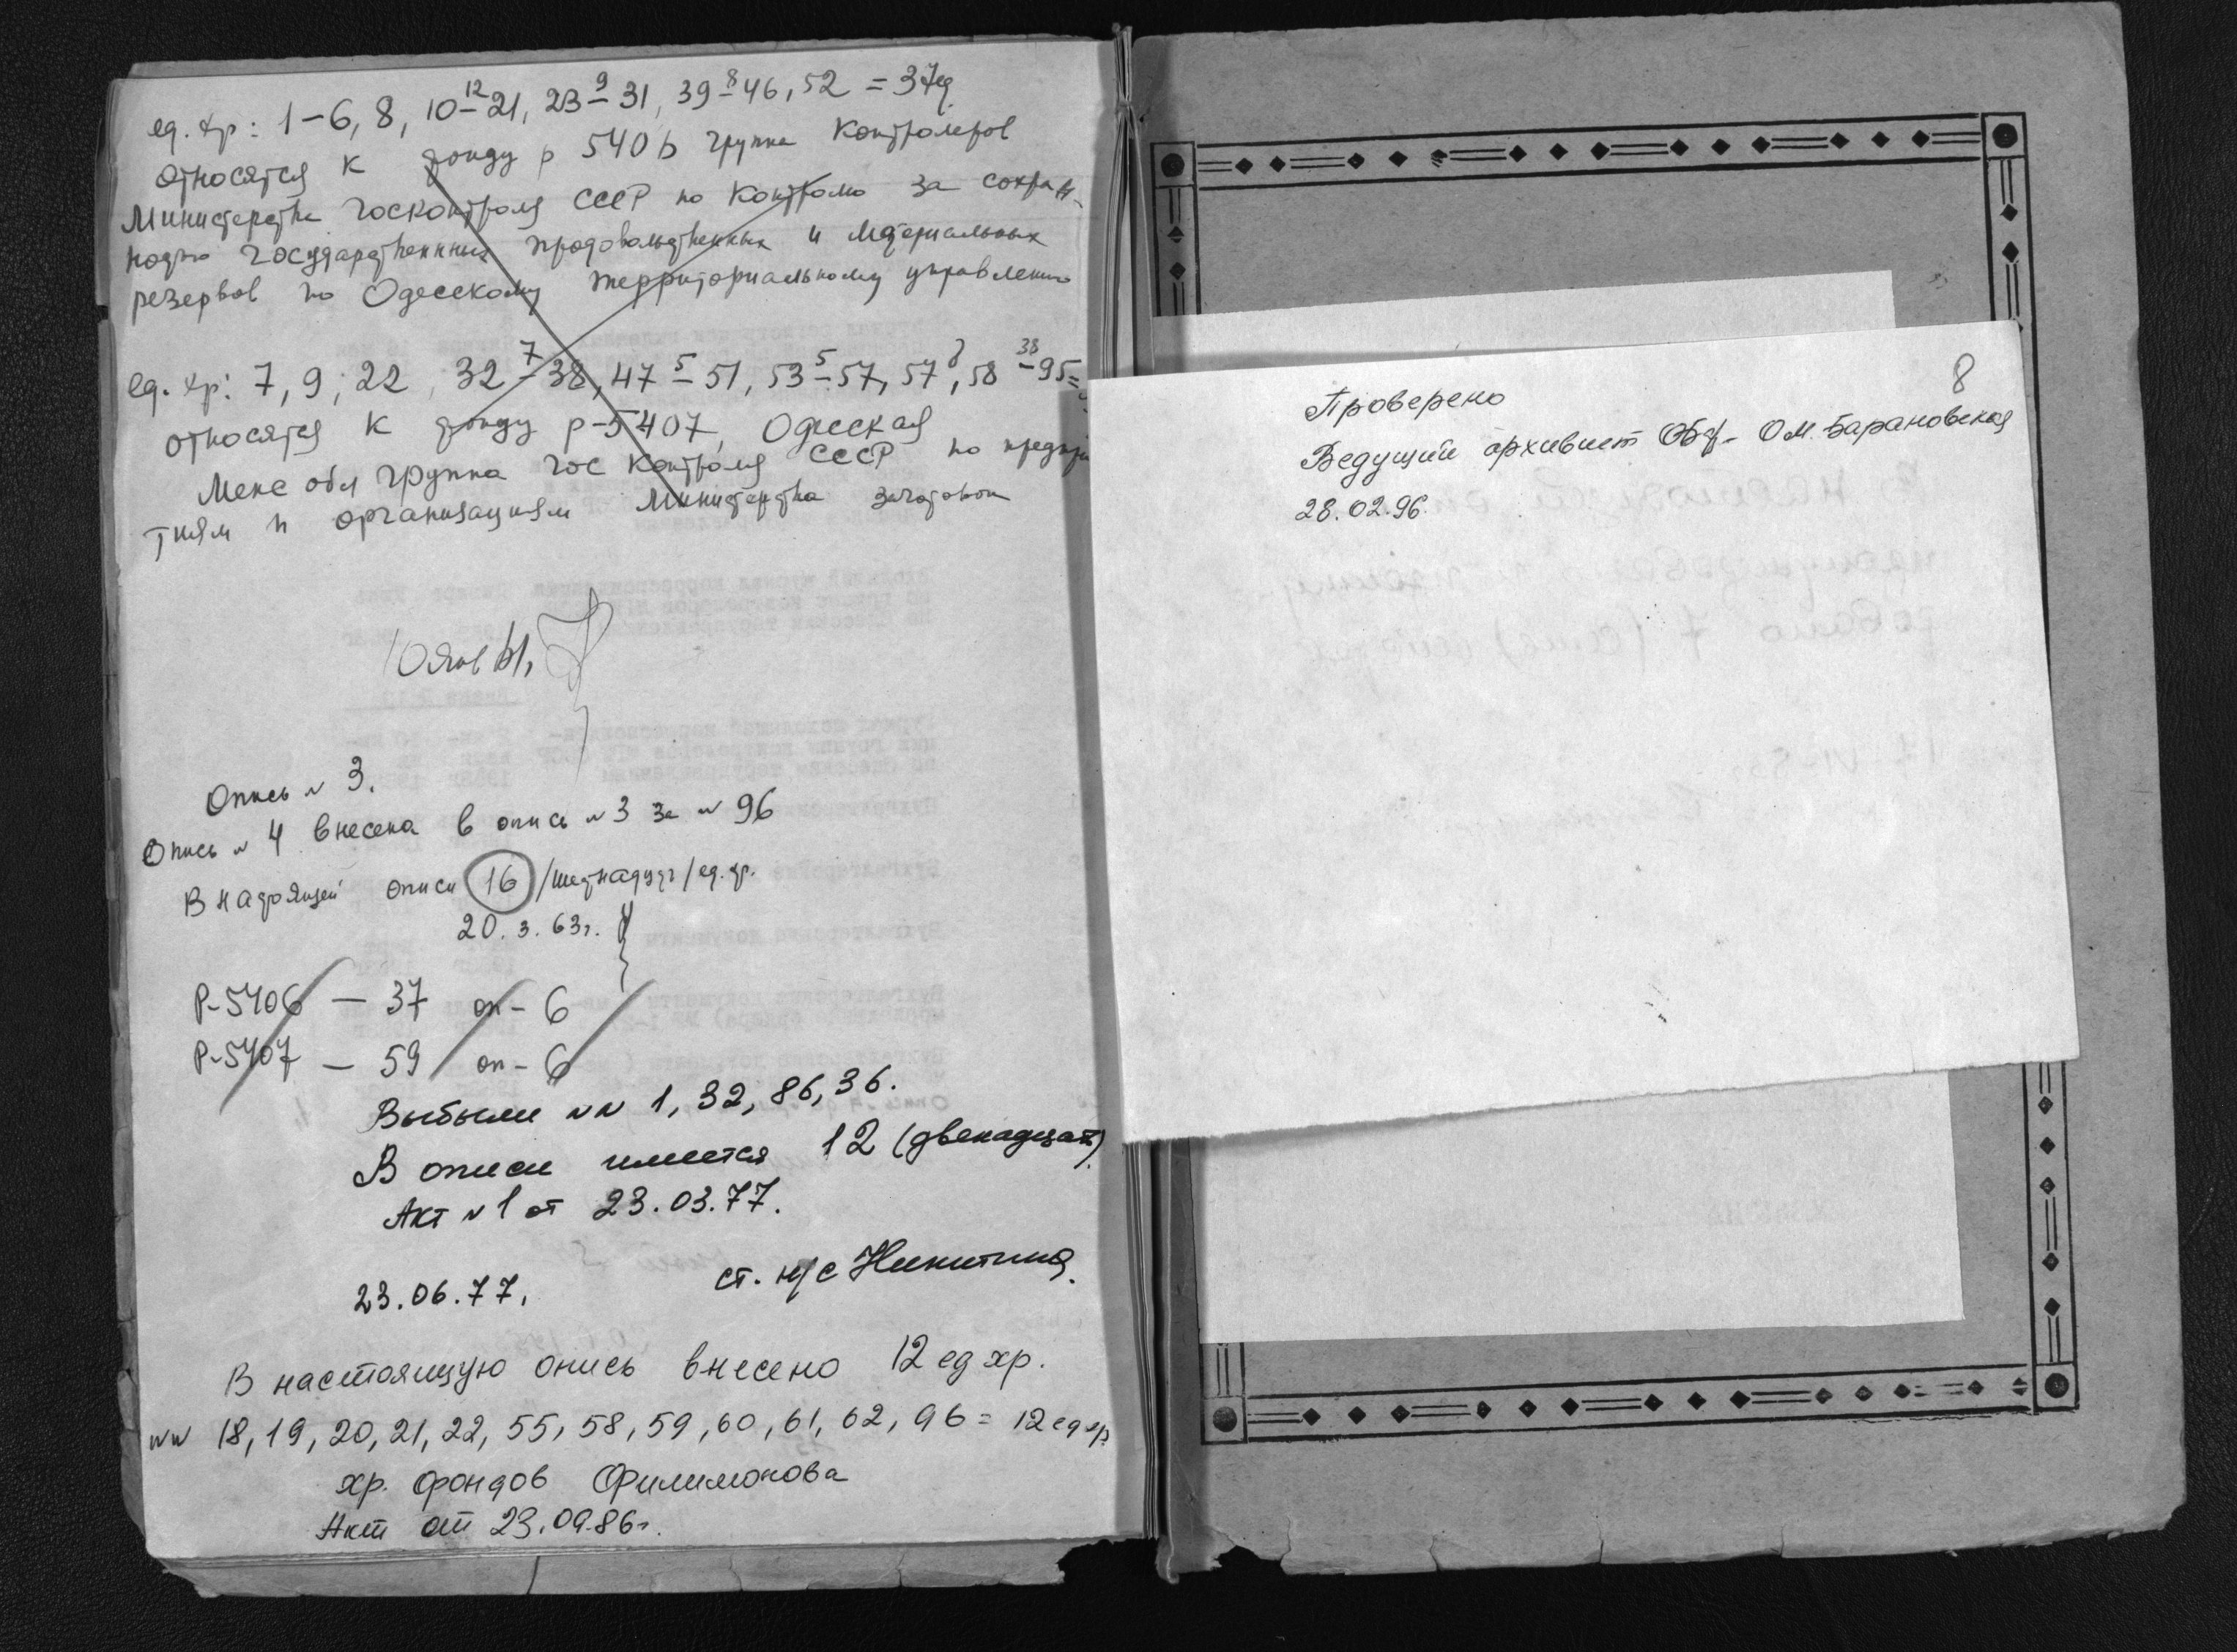 ед. хр: 1–6, 8, 10–21, 23–31, 39–46, 52 = 37ед
12 9 8
относятся к фонду р 5406 группа контролеров
Министерства Госконтроля СССР по контролю за сохран-
ностью государственных продовольственных и материальных
резервов по Одесскому территориальному управлению
ед. хр: 7, 9, 22, 32–38, 47–51, 53–57, 57, 58–95=
7 5 5 38
относятся к фонду р-5407, Одесская
Меж обл группа гос контроля СССР по предприя
тиям и организациям Министерства заготовок
Опись № 3.
Опись № 4 внесена в опись № 3 за № 96
В настоящей описи 16 /шестнадцать/ ед. хр.
20.3.63г.
Р-5406 – 37 оп-6
Р-5407 – 59 оп-6
Выбыли №№ 1, 32, 86, 36.
В описи имеется 12 (двенадцать)
Акт № 1 от 23.03.77.
23.06.77. ст. н/с Никитина
В настоящую опись внесено 12 ед хр.
№№ 18, 19, 20, 21, 22, 55, 58, 59, 60, 61, 62, 96 = 12 ед хр.
хр. фондов Филимонова
Акт от 23.09.86г.
8
Проверено
Ведущий архивист О.М. Барановская
28.02.96.